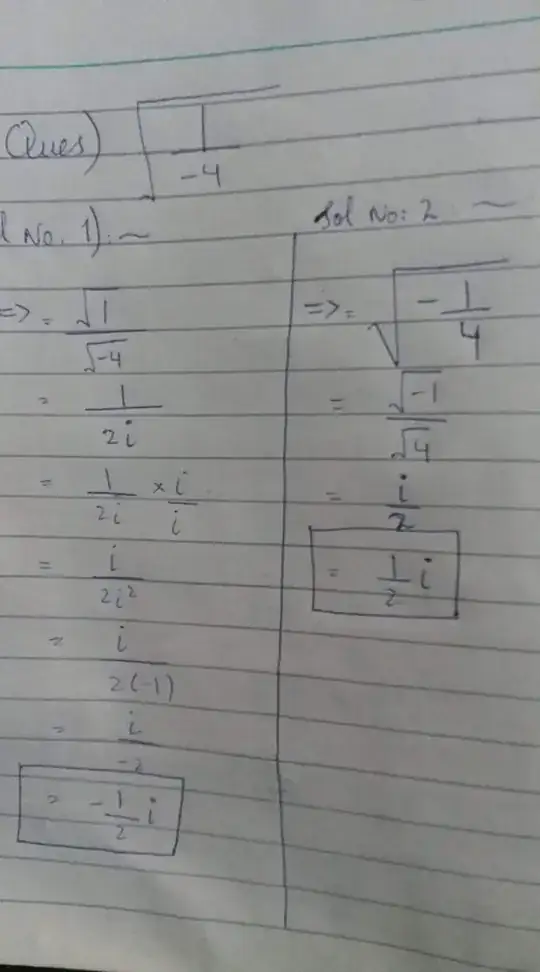 (Ques) √(1/-4)
l No. 1):~
=> = √1/√-4
= 1/2i
= 1/2i × i/i
= i/2i²
= i/2(-1)
= i/-2
= -1/2 i
Sol No: 2 :~
=> = √(-1/4)
= √-1/√4
= i/2
= 1/2 i